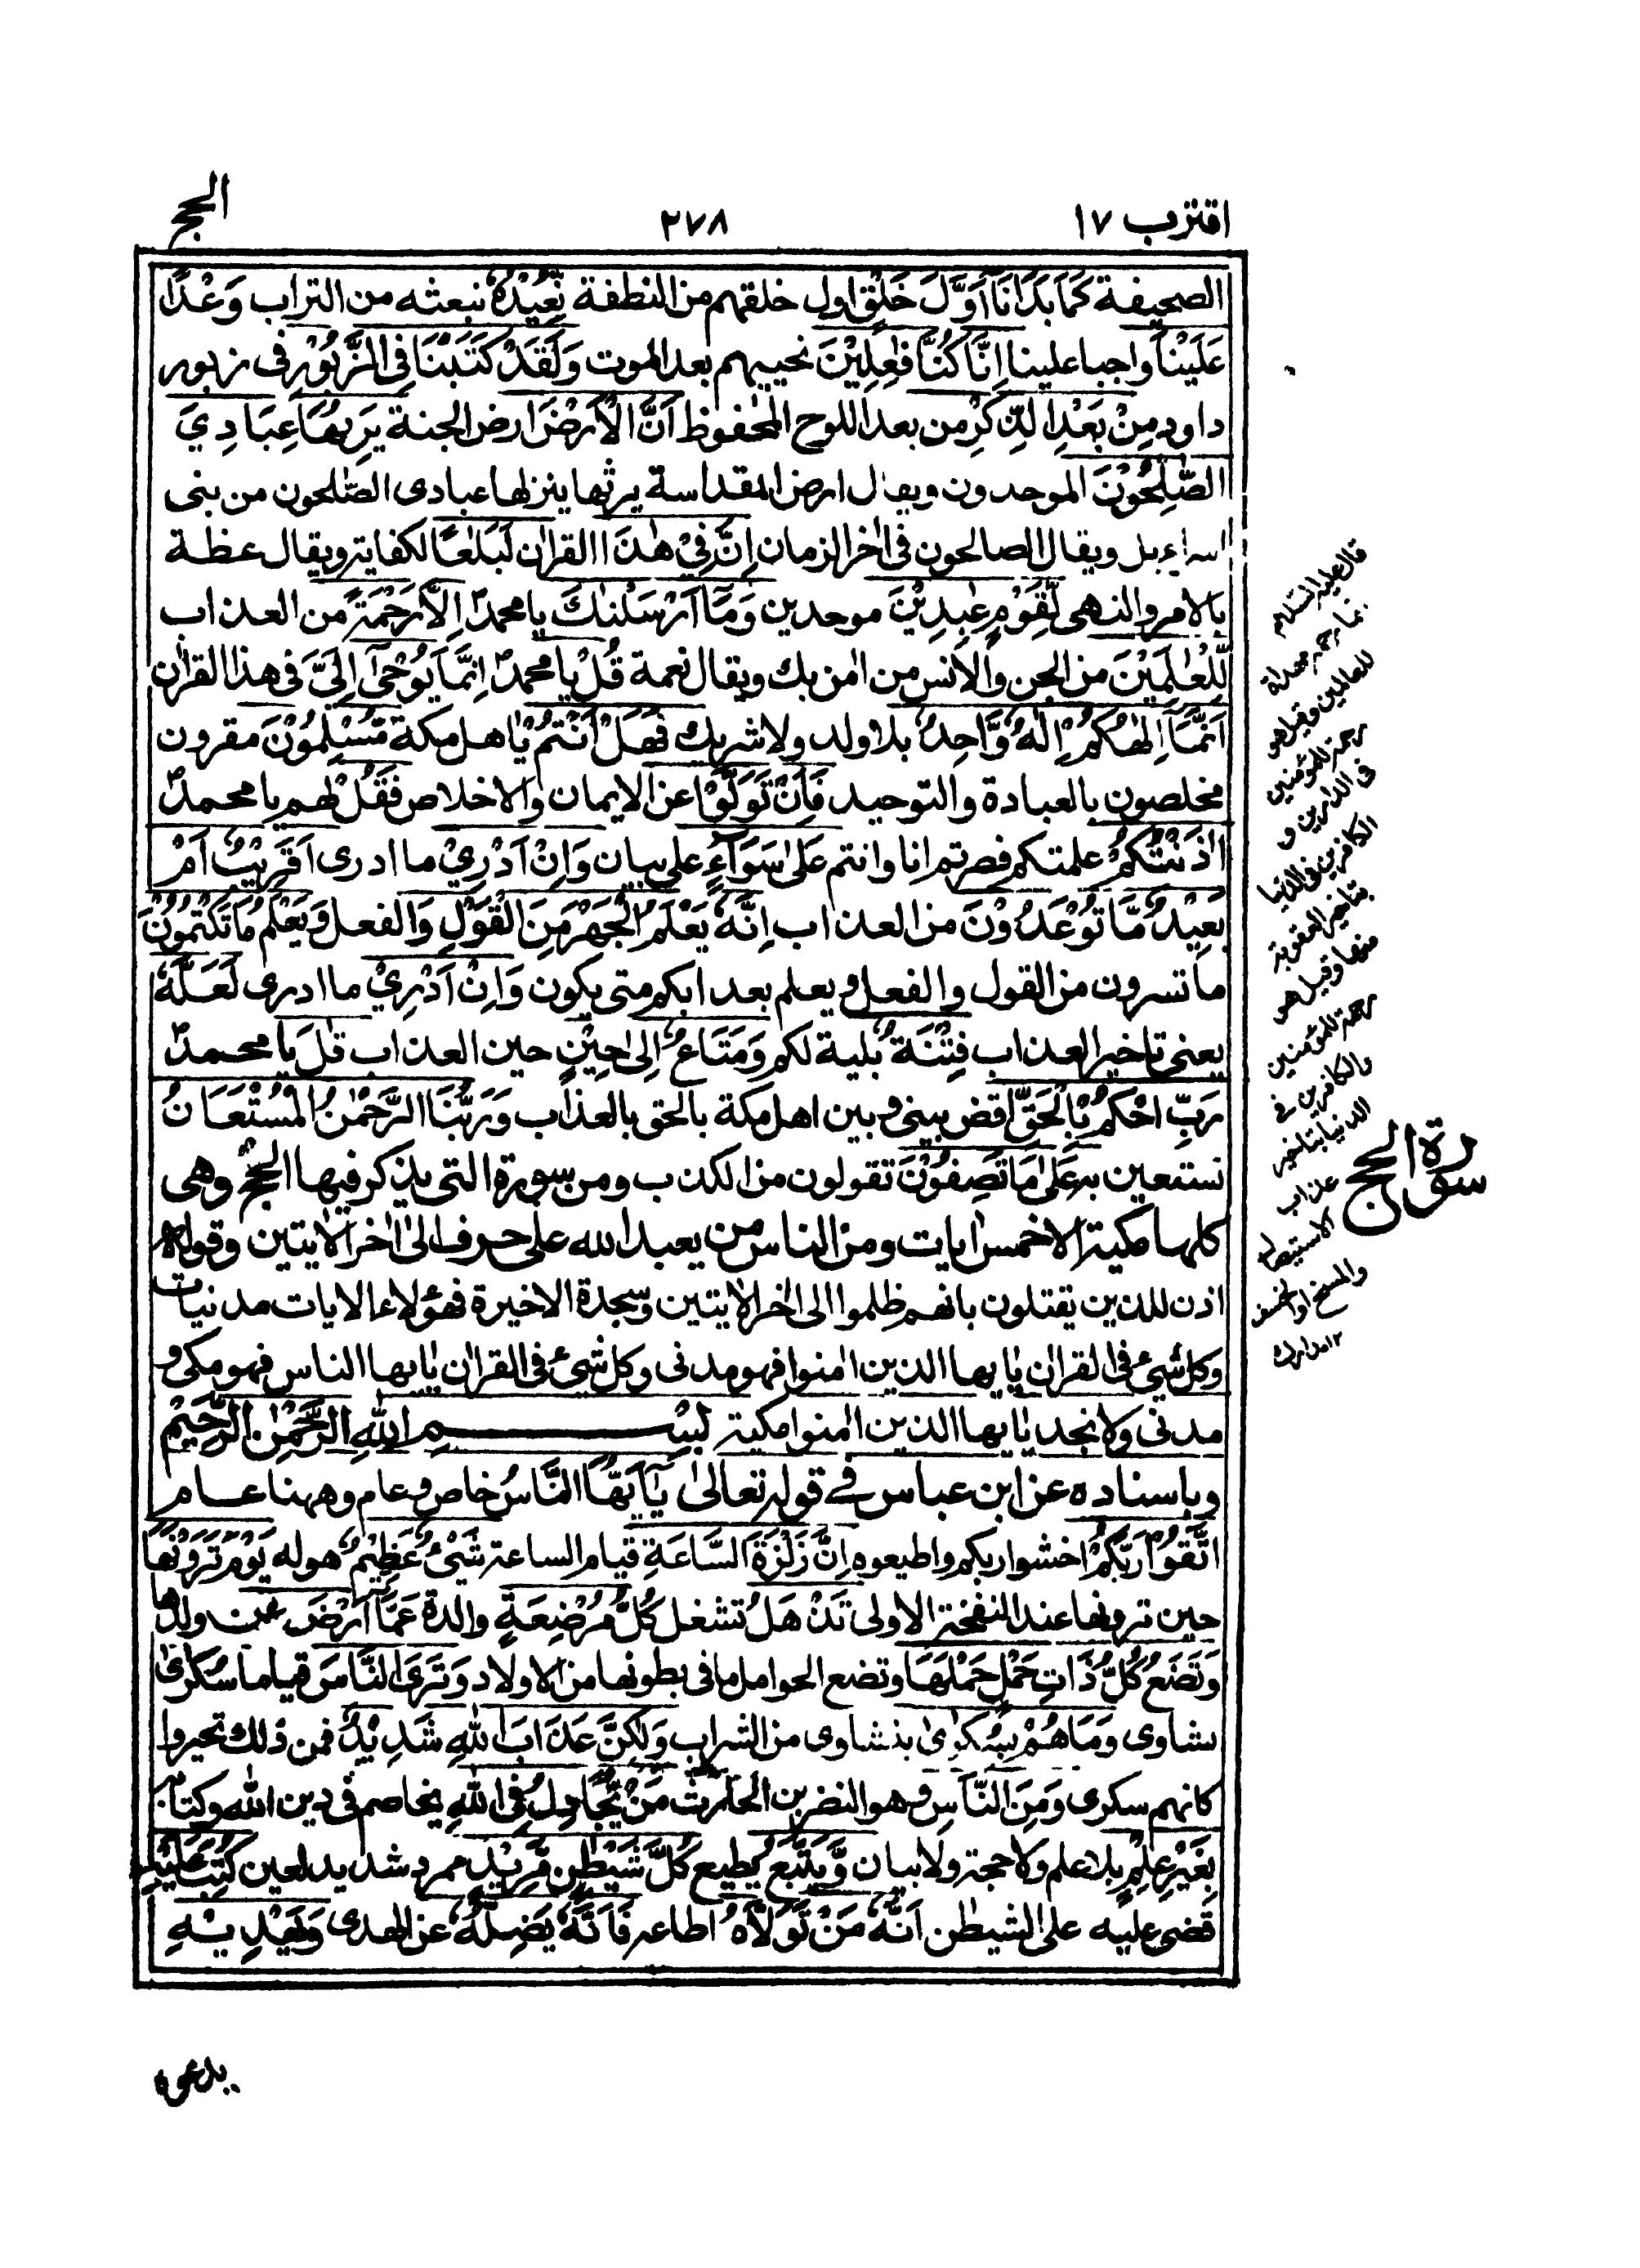 اقترب ١٧
٢٧٨
الحج
الصحيفة كَمَا بَدَاْنَا اَوَّلَ خَلْقٍ اول خلقهم من النطفة نُّعِيْدُهٗ نبعثه من التراب وَعْدًا
عَلَيْنَا واجبا علينا اِنَّا كُنَّا فٰعِلِيْنَ نحييهم بعد الموت وَلَقَدْ كَتَبْنَا فِى الزَّبُوْرِ فى زبور
داود مِنْ بَعْدِ الذِّكْرِ من بعد اللوح المحفوظ اَنَّ الْاَرْضَ ارض الجنة يَرِثُهَا عِبَادِيَ
الصّٰلِحُوْنَ الموحدون ويقال ارض المقداسة يرثها ينزلها عبادى الصّٰلحون من بنى
اسراءيل ويقال الصالحون فى اٰخر الزمان اِنَّ فِيْ هٰذَا القراٰن لَبَلٰغًا لكفاية ويقال عظة
بالامر والنهى لِّقَوْمٍ عٰبِدِيْنَ موحدين وَمَآ اَرْسَلْنٰكَ يا محمدؐ اِلَّا رَحْمَةً من العذاب
لِّلْعٰلَمِيْنَ من الجن والانس من اٰمن بك ويقال نعمة قُلْ يا محمدؐ اِنَّمَا يُوْحٰٓى اِلَيَّ فى هذا القراٰن
اَنَّمَآ اِلٰهُكُمْ اِلٰهٌ وَّاحِدٌ بلا ولد ولا شريك فَهَلْ اَنْتُمْ يٰاهل مكة مُّسْلِمُوْنَ مقرون
مخلصون بالعبادة والتوحيد فَاِنْ تَوَلَّوْا عن الايمان والاخلاص فَقُلْ لهم يا محمدؐ
اٰذَنْتُكُمْ علمتكم فصرتم انا وانتم عَلٰى سَوَآءٍ على بيان وَاِنْ اَدْرِيْ ما ادرى اَقَرِيْبٌ اَمْ
بَعِيْدٌ مَّا تُوْعَدُوْنَ من العذاب اِنَّهٗ يَعْلَمُ الْجَهْرَ مِنَ الْقَوْلِ وَالفعل وَيَعْلَمُ مَا تَكْتُمُوْنَ
ما تسرون من القول والفعل ويعلم بعذابكم متى يكون وَاِنْ اَدْرِيْ ما ادرى لَعَلَّهٗ
يعنى تاخير العذاب فِتْنَةٌ بلية لكم وَمَتَاعٌ اِلٰى حِيْنٍ حين العذاب قٰلَ يا محمدؐ
رَبِّ احْكُمْ بِالْحَقِّ اقض بينى وبين اهل مكة بالحق بالعذاب وَرَبُّنَا الرَّحْمٰنُ الْمُسْتَعَانُ
نستعين به عَلٰى مَا تَصِفُوْنَ تقولون من الكذب ومن سورة التى يذكر فيها الحج وهى
كلها مكية الا خمس اٰيات ومن الناس من يعبد الله على حرف الى اٰخر الاٰيتين وقوله
اذن للذين يقتلون بانهم ظلموا الى اٰخر الاٰيتين وسجدة الاخيرة فهؤلاء الايات مدنيات
وكل شىء فى القراٰن يٰايها الذين اٰمنوا فهو مدنى وكل شىء فى القراٰن يٰايها الناس فهو مكى و
مدنى ولا نجد يٰايها الذين اٰمنوا مكية بِسْمِ اللّٰهِ الرَّحْمٰنِ الرَّحِيْمِ
وباسناده عن ابن عباس فى قوله تعالىٰ يٰٓاَيُّهَا النَّاسُ خاص وعام وههنا عام
اتَّقُوْا رَبَّكُمْ اخشوا ربكم واطيعوه اِنَّ زَلْزَةَ السَّاعَةِ قيام الساعة شَىْءٌ عَظِيْمٌ هوله يَوْمَ تَرَوْنَهَا
حين ترونها عند النفخة الاولى تَذْهَلُ تشغل كُلُّ مُرْضِعَةٍ والدة عَمَّآ اَرْضَعَت ولدها
وَتَضَعُ كُلُّ ذَاتِ حَمْلٍ حَمْلَهَا وتضع الحوامل ما فى بطونها من الاولاد وَتَرَى النَّاسَ قياما سُكٰرٰى
نشاوى وَمَا هُمْ بِسُكٰرٰى بذشاوى من الشراب وَلٰكِنَّ عَذَابَ اللّٰهِ شَدِيْدٌ فمن ذٰلك تحيروا
كانهم سكرى وَمِنَ النَّاسِ وهو النضر بن الحارث مَنْ يُّجَادِلُ فِى اللّٰهِ يخاصم فى دين الله وكتابه
بِغَيْرِ عِلْمٍ بلا علم ولا حجة ولا بيان وَّيَتَّبِعُ يطيع كُلَّ شَيْطٰنٍ مَّرِيْدٍ ممرد شديد لعين كُتِبَ عَلَيْهِ
قضى عليه على الشيطٰن اَنَّهٗ مَنْ تَوَلَّاهُ اطاعه فَاَنَّهٗ يُضِلُّهٗ عن الهدى وَيَهْدِيْهِ
قال عليه السلام
انما رحمة مهداة
للعالمين وقيل هو
رحمة للمؤمنين
فى الدارين و
الكافرين فى الدنيا
بتاخير العقوبة
منها وقيل هو
رحمة للمؤمنين
والكافرين فى
الدنيا بتاخير
عذاب
الاستيصال
والمسخ او الخسف
١٢ مدارك
سورة الحج
يدعو